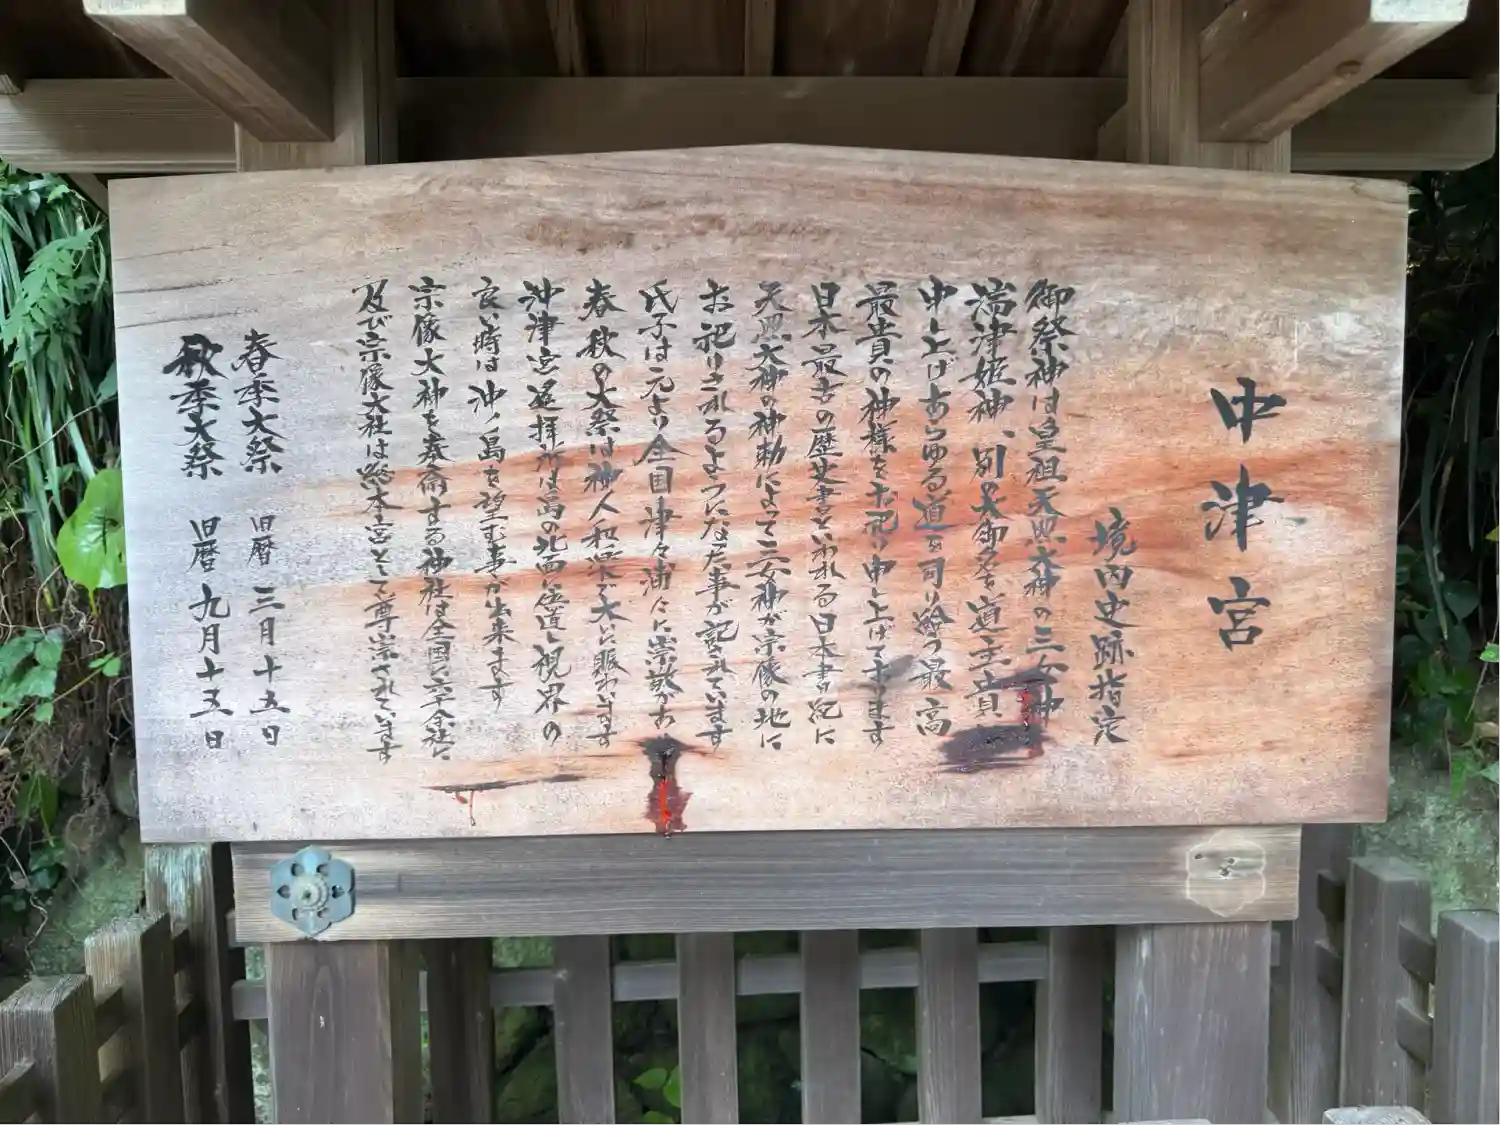 中津宮
境内史跡指定
御祭神は皇祖天照大神の三女神
湍津姫神、別の大御名を道主貴
申し上げあらゆる道を司り給う最高
最貴の神様をお祀り申し上げております
日本最古の歴史書といわれる日本書紀に
天照大神の神勅によって三女神が宗像の地に
お祀りされるようになった事が記されています
氏子は元より全国津々浦々に崇敬があ
春秋の大祭は神人和楽で大いに賑わいます
沖津宮遥拝所は島の北西に位置し視界の
良い時は沖ノ島を望む事が出来ます
宗像大神を奉斎する神社は全国に六千余社に
及び宗像大社は総本宮として尊崇されています
春季大祭 旧暦 三月十五日
秋季大祭 旧暦 九月十五日